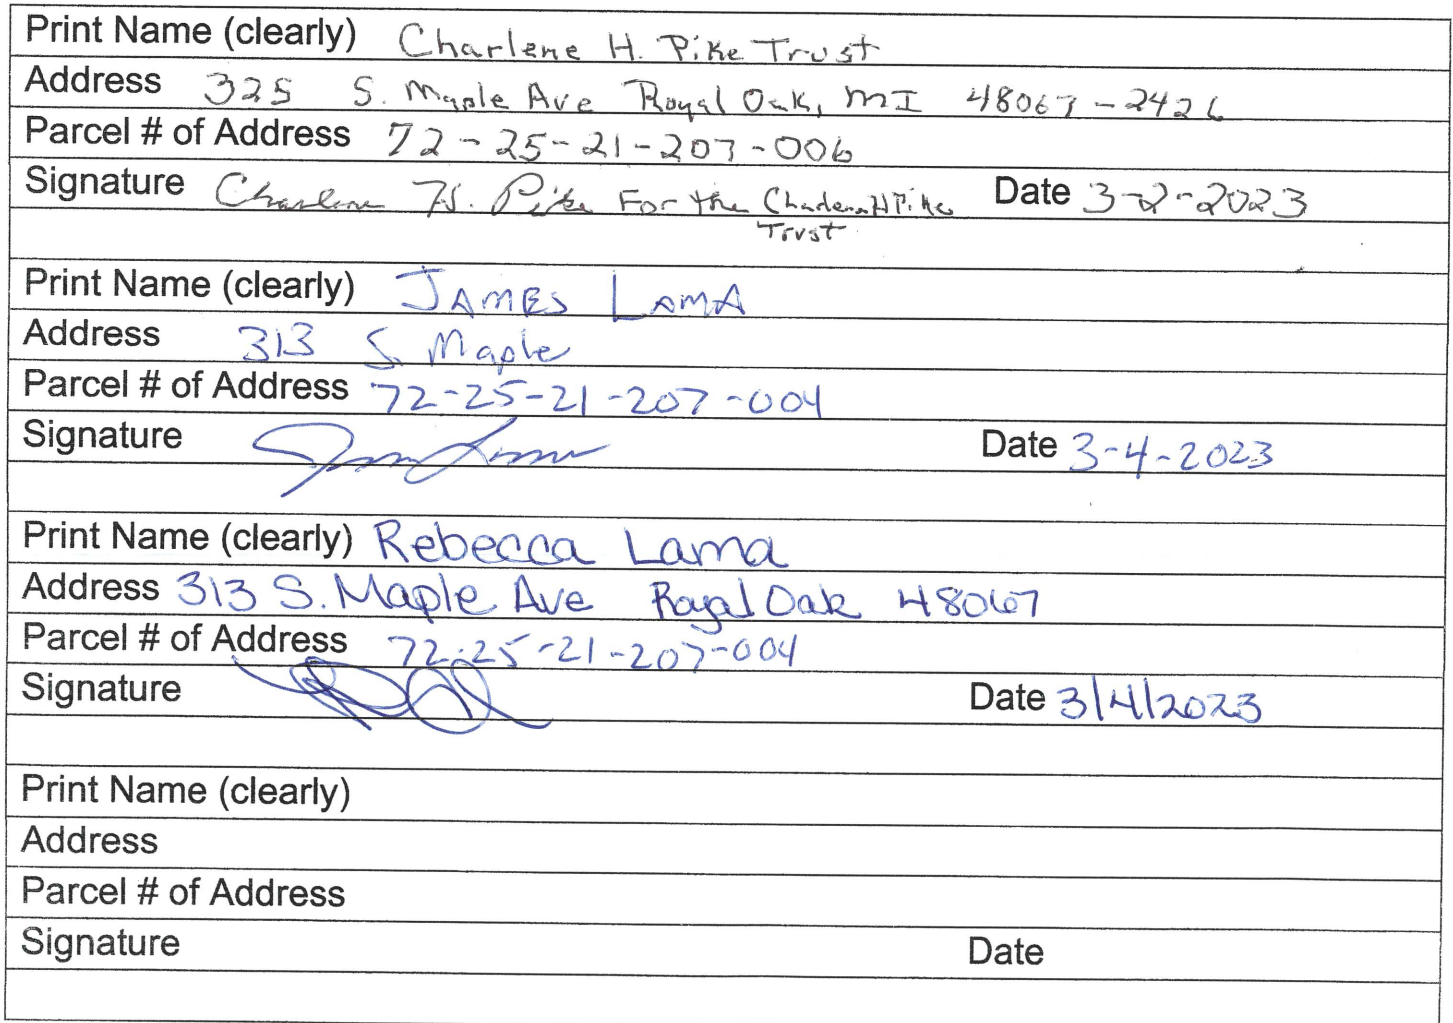 Print Name (clearly) Charlene H. Pike Trust
Address 325 S. Maple Ave Royal Oak, MI 48067-2426
Parcel # of Address 72-25-21-207-006
Signature Charlene H. Pike For the Charlene H Pike Date 3-2-2023
Trust
Print Name (clearly) JAMES LAMA
Address 313 S. Maple
Parcel # of Address 72-25-21-207-004
Signature Date 3-4-2023
Print Name (clearly) Rebecca Lama
Address 313 S. Maple Ave Royal Oak 48067
Parcel # of Address 72-25-21-207-004
Signature Date 3/4/2023
Print Name (clearly)
Address
Parcel # of Address
Signature Date